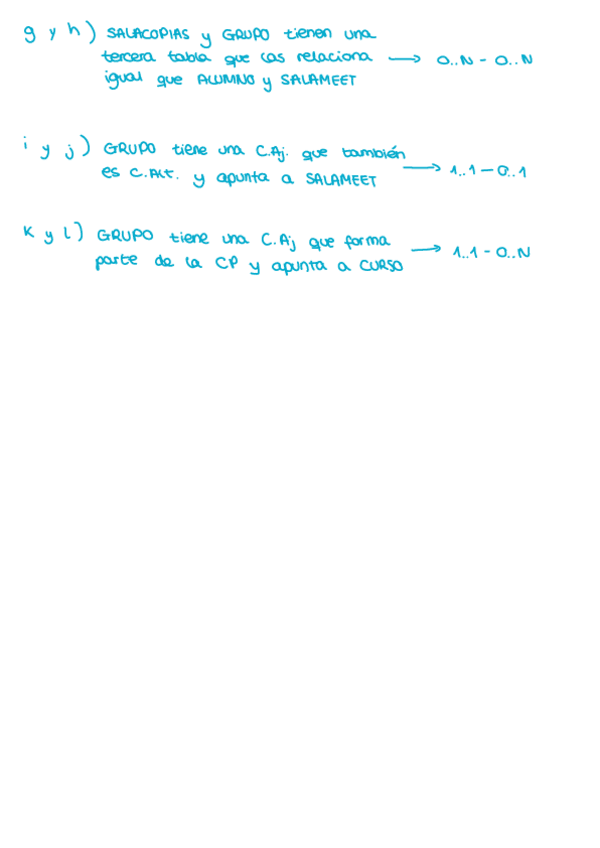 g y h) SALACOPIAS y GRUPO tienen una
tercera tabla que las relaciona → 0..N - 0..N
igual que ALUMNO y SALAMEET
i y j) GRUPO tiene una C.Aj. que también
es C.Alt. y apunta a SALAMEET → 1..1 - 0..1
k y l) GRUPO tiene una C.Aj que forma
parte de la CP y apunta a CURSO → 1..1 - 0..N